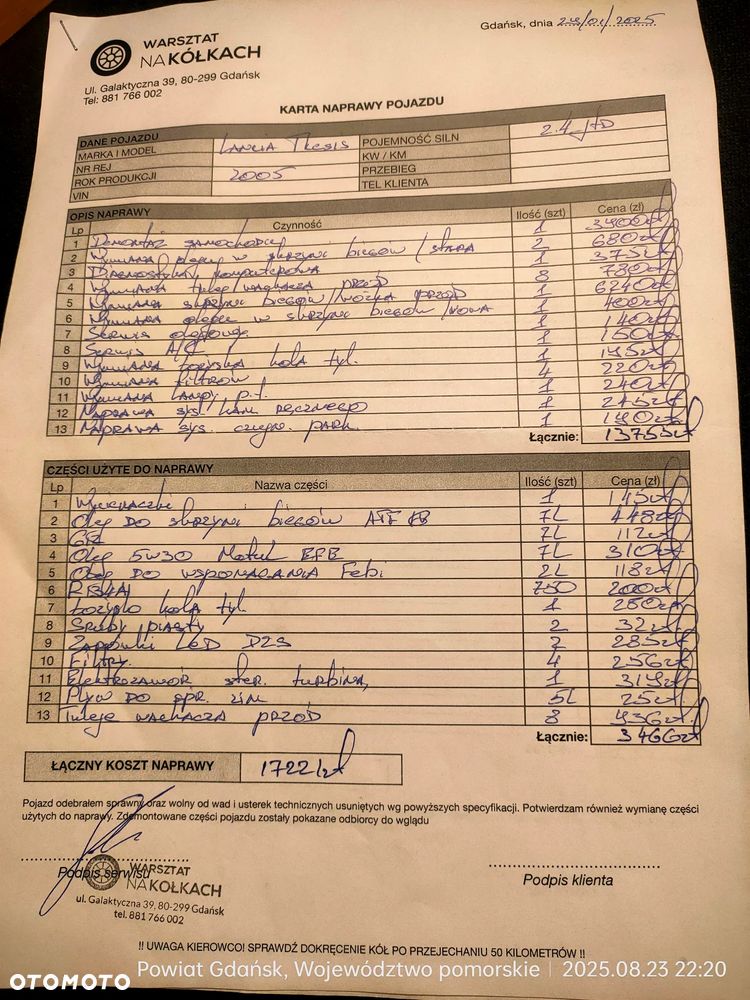 Gdańsk, dnia 24/01/2025
WARSZTAT
NA KÓŁKACH
Ul. Galaktyczna 39, 80-299 Gdańsk
Tel: 881 766 002
KARTA NAPRAWY POJAZDU
DANE POJAZDU
MARKA I MODEL LANCIA THESIS POJEMNOŚĆ SILN 2.4 JTD
NR REJ KW / KM
ROK PRODUKCJI 2005 PRZEBIEG
VIN TEL KLIENTA
OPIS NAPRAWY
Lp Czynność Ilość (szt) Cena (zł)
1 Demontaż 1 3400zł
2 Wymiana oleju w skrzyni biegów / stara 2 680zł
3 Diagnostyka komputerowa 1 375zł
4 Wymiana tulei wahacza przód 8 780zł
5 Wymiana skrzyni biegów / wózka przód 1 6240zł
6 Wymiana oleju w skrzyni biegów / nowa 1 400zł
7 Serwis olejowy 1 140zł
8 Serwis A/C 1 150zł
9 Wymiana łożyska koła tyl. 1 145zł
10 Wymiana filtrów 4 220zł
11 Wymiana lampy p.t. 1 240zł
12 Naprawa sys. ham. ręcznego 1 245zł
13 Naprawa sys. czujn. park. 1
Łącznie: 13755zł
CZĘŚCI UŻYTE DO NAPRAWY
Lp Nazwa części Ilość (szt) Cena (zł)
1 1 145zł
2 Olej do skrzyni biegów ATF 7L 448zł
3 7L 112zł
4 Olej 5W30 Motul 7L 310zł
5 Olej do wspomagania Febi 2L 118zł
6 R134A 750 200zł
7 Łożysko koła tyl. 1 280zł
8 Śruby piasty 2 32zł
9 Żarówki LED D2S 2 285zł
10 Filtry. 4 256zł
11 Elektrozawór ster. turbiną 1 319zł
12 Płyn do spr. zim 5L 25zł
13 Tuleje wahacza przód 8 936zł
Łącznie: 3466zł
ŁĄCZNY KOSZT NAPRAWY 17221zł
Pojazd odebrałem sprawny oraz wolny od wad i usterek technicznych usuniętych wg powyższych specyfikacji. Potwierdzam również wymianę części
użytych do naprawy. Zdemontowane części pojazdu zostały pokazane odbiorcy do wglądu
Podpis serwisu
Podpis klienta
WARSZTAT
NA KÓŁKACH
ul. Galaktyczna 39, 80-299 Gdańsk
tel. 881 766 002
!! UWAGA KIEROWCO! SPRAWDŹ DOKRĘCENIE KÓŁ PO PRZEJECHANIU 50 KILOMETRÓW !!
OTOMOTO
Powiat Gdańsk, Województwo pomorskie | 2025.08.23 22:20